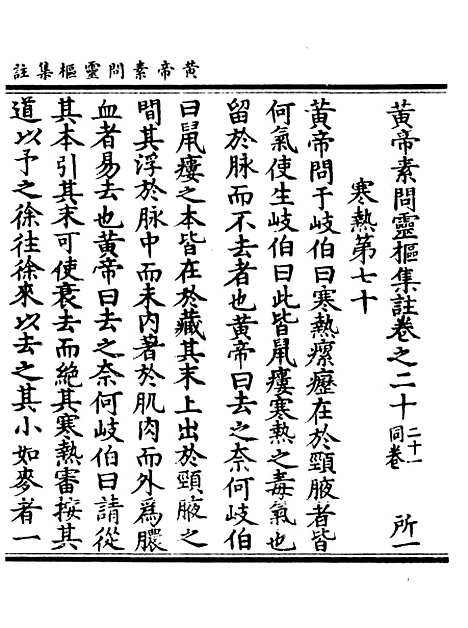 黄帝素問靈樞集註
黄帝素問靈樞集註卷之二十 二十一同卷 所一
寒熱第七十
黄帝問于岐伯曰寒熱瘰癧在於頸腋者皆
何氣使生岐伯曰此皆鼠瘻寒熱之毒氣也
留於脉而不去者也黄帝曰去之奈何岐伯
曰鼠瘻之本皆在於藏其末上出於頸腋之
間其浮於脉中而未内著於肌肉而外爲膿
血者易去也黄帝曰去之奈何岐伯曰請從
其本引其末可使衰去而絶其寒熱審按其
道以予之徐往徐來以去之其小如麥者一